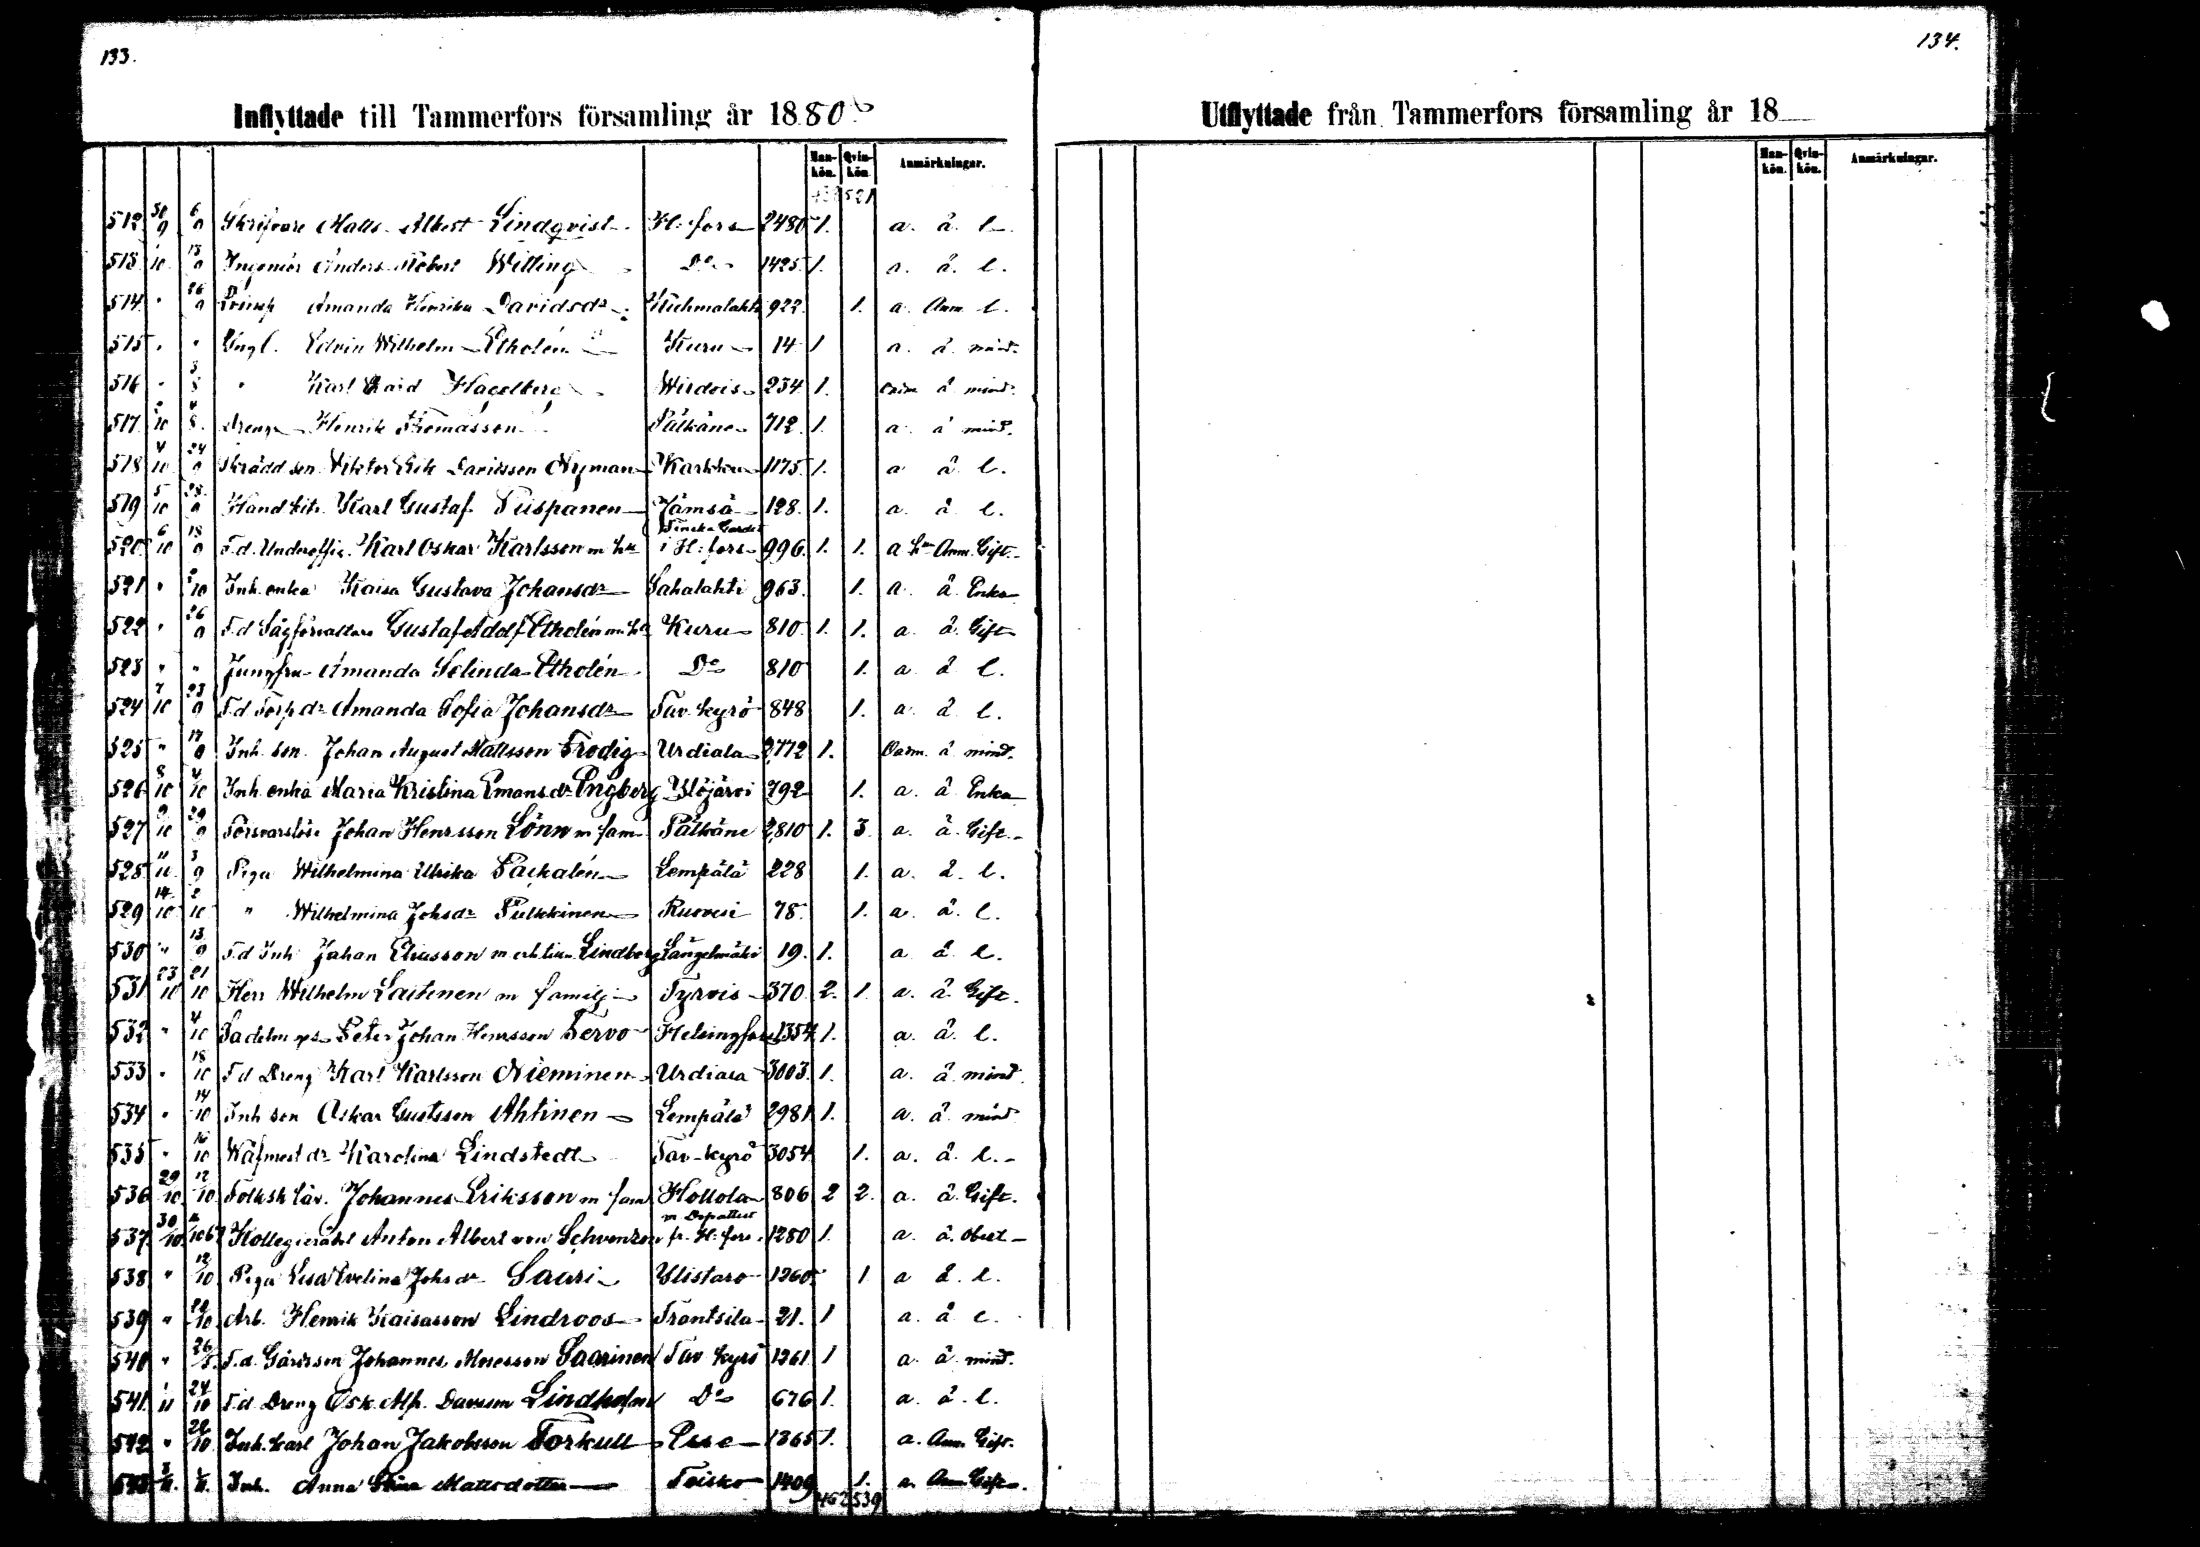 133.
Inflyttade till Tammerfors församling år 1880
Mankön. Qvinkön. Anmärkningar.
521
512 30/9 6/9 Skrifvare Matts Albert Lindqvist H:fors 2480 1. a. å. l.
513 1/10 13/9 Ingeniör Anders Robert Witting Do 1425 1. a. å. l.
514 " 26/9 Amanda Henrika Davidsdr Kuhmalahti 922 1. a. Anm. l.
515 " " Yngl. Edvin Wilhelm Etholén Kuru 14 1 a. å. mind.
516 " 3/8 " Karl Hagelberg Wirdois 234 1. å mind.
517 2/10 4/8 Dreng Henrik Thomasson Pälkäne 712 1. a. å mind.
518 4/10 24/9 Skrädd son Viktor Erik Davidsson Nyman Karkku 1175 1. a å l.
519 5/10 28/9 Handl.bitr. Karl Gustaf Piispanen Jämsä 128. 1. a. å l.
Finska Gardet
520 6/10 18/9 F.d. Underoffic. Karl Oskar Karlsson m hu i H:fors 996. 1. 1. a hm Anm. Gift.
521 " 2/10 Inh. enka Kaisa Gustava Johansdr Sahalahti 963. 1. a. å Enka
522 " 26/9 F.d Sågförvaltare Gustaf Adolf Etholén m hu Kuru 810. 1. 1. a. å. Gift
523 " " Jungfru Amanda Selinda Etholén Do 810 1. a å l.
524 7/10 23/9 F.d Torp.dr Amanda Sofia Johansdr Tav. Kyrö 848 1. a. å l.
525 " 17/9 Inh. son. Johan August Mattsson Frodig Urdiala 2772 1. Barn. å mind.
526 8/10 4/10 Inh. enka Maria Kristina Emansdr Engberg Ylöjärvi 792 1. a. å Enka
527 9/10 29/9 Försvarslöse Johan Henrsson Lönn m fam. Pälkäne 2810 1. 3. a. å. Gift.
528 11/10 3/9 Piga Wilhelmina Ulrika Paskalén Lempälä 228 1. a. å. l.
529 14/10 2/10 " Wilhelmina Johsdr Pulkkinen Ruovesi 78. 1. a. å. l.
530 " 13/9 F.d Inh Johan Eliasson Lindberg Längelmäki 19. 1. a å. l.
531 23/10 21/10 Herr Wilhelm Laitinen m familj Tyrvis 370. 2. 1. a. å. Gift.
532 " 4/10 Peter Johan Henrsson Tervo Helsingfors 1354 1. a. å. l.
533 " 18/10 F.d Dreng Karl Karlsson Nieminen Urdiala 3003. 1. a. å mind
534 " 14/10 Inh son Oskar Gustsson Ahtinen Lempälä 2981 1. a. å mind
535 " 16/10 Wäfmest dr Karolina Lindstedt Tav-kyrö 3054 1. a. å. l.
536 29/10 12/10 Folksk lär. Johannes Eriksson m fam Hollola 806 2 2. a. å. Gift.
537 30/10 Kollegierådet Anton Albert von Schvenzon fr. H:fors. 1280 1. a. å. obest
538 " 12/10 Piga Lisa Evelina Johsdr Saari Ylistaro 1260. 1 a å. l.
539 " 20/10 Arb. Henrik Kaisasson Lindroos Frantsila 21. 1 a. å l.
540 " F.d. Gårdsson Johannes Mosesson Saarinen Tav kyrö 1261. 1 a. å. mind.
541. 1/11 24/10 F.d. Dreng Osk. Alf. Davsson Lindholm Do 676 1. a. å. l.
542 " 22/10 Inh. karl Johan Jakobsson Torkull Esse 1365 1. a. Anm. Gift.
543 3/11. 1/11. Inh. Anna Stina Mattsdotter Teisko 1409 1. a. Anm Gift.
462 539
134.
Utflyttade från Tammerfors församling år 18
Mankön. Qvinkön. Anmärkningar.